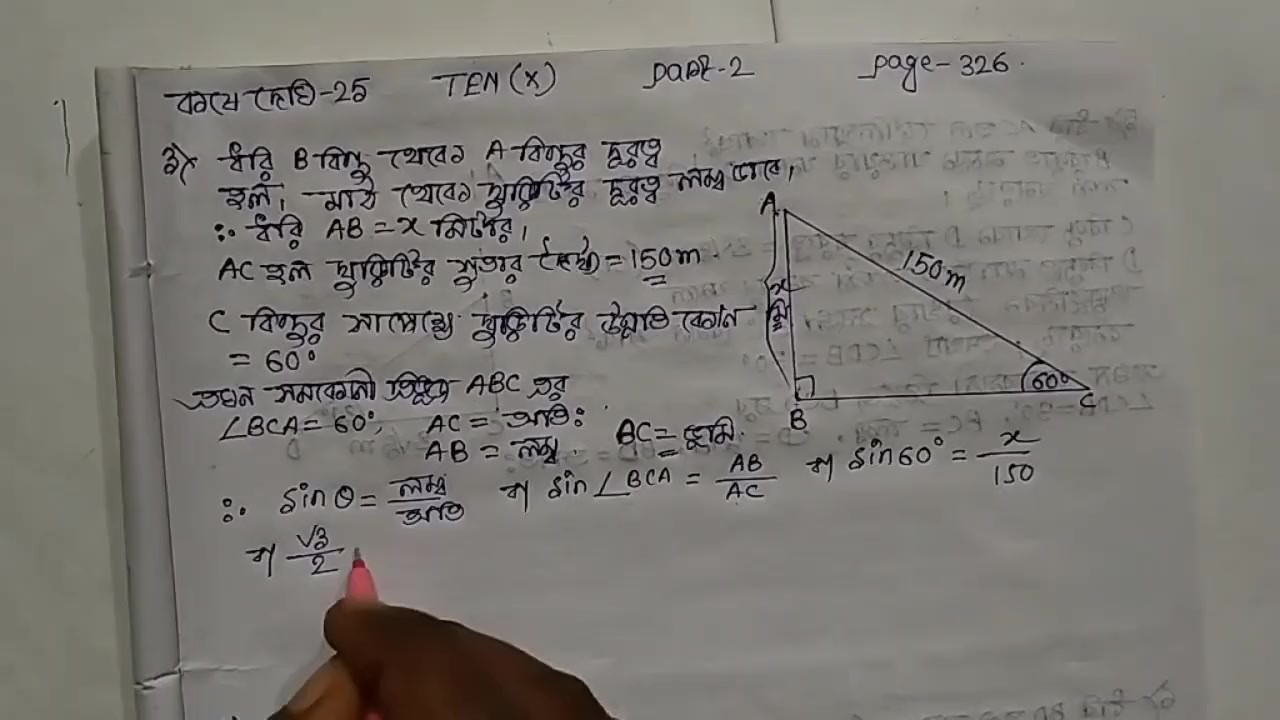 কষে দেখি-25 TEN (X) part-2 page-326.
3) ধরি B বিন্দু থেকে A বিন্দুর দূরত্ব
হল, মাঠ থেকে ঘুড়িটির দূরত্ব লম্ব ভাবে,
∴ ধরি AB = x মিটার,
AC হল ঘুড়িটির সুতার দৈর্ঘ্য = 150 m.
C বিন্দুর সাপেক্ষে ঘুড়িটির উন্নতি কোণ
= 60°
এখন সমকোণী ত্রিভুজ ABC এর
∠BCA = 60°, AC = অতিঃ
AB = লম্ব. BC = ভূমি.
∴ sin θ = লম্ব/অতি বা sin ∠BCA = AB/AC বা sin 60° = x/150
বা √3/2
A
150 m
x
মি
60°
B
C